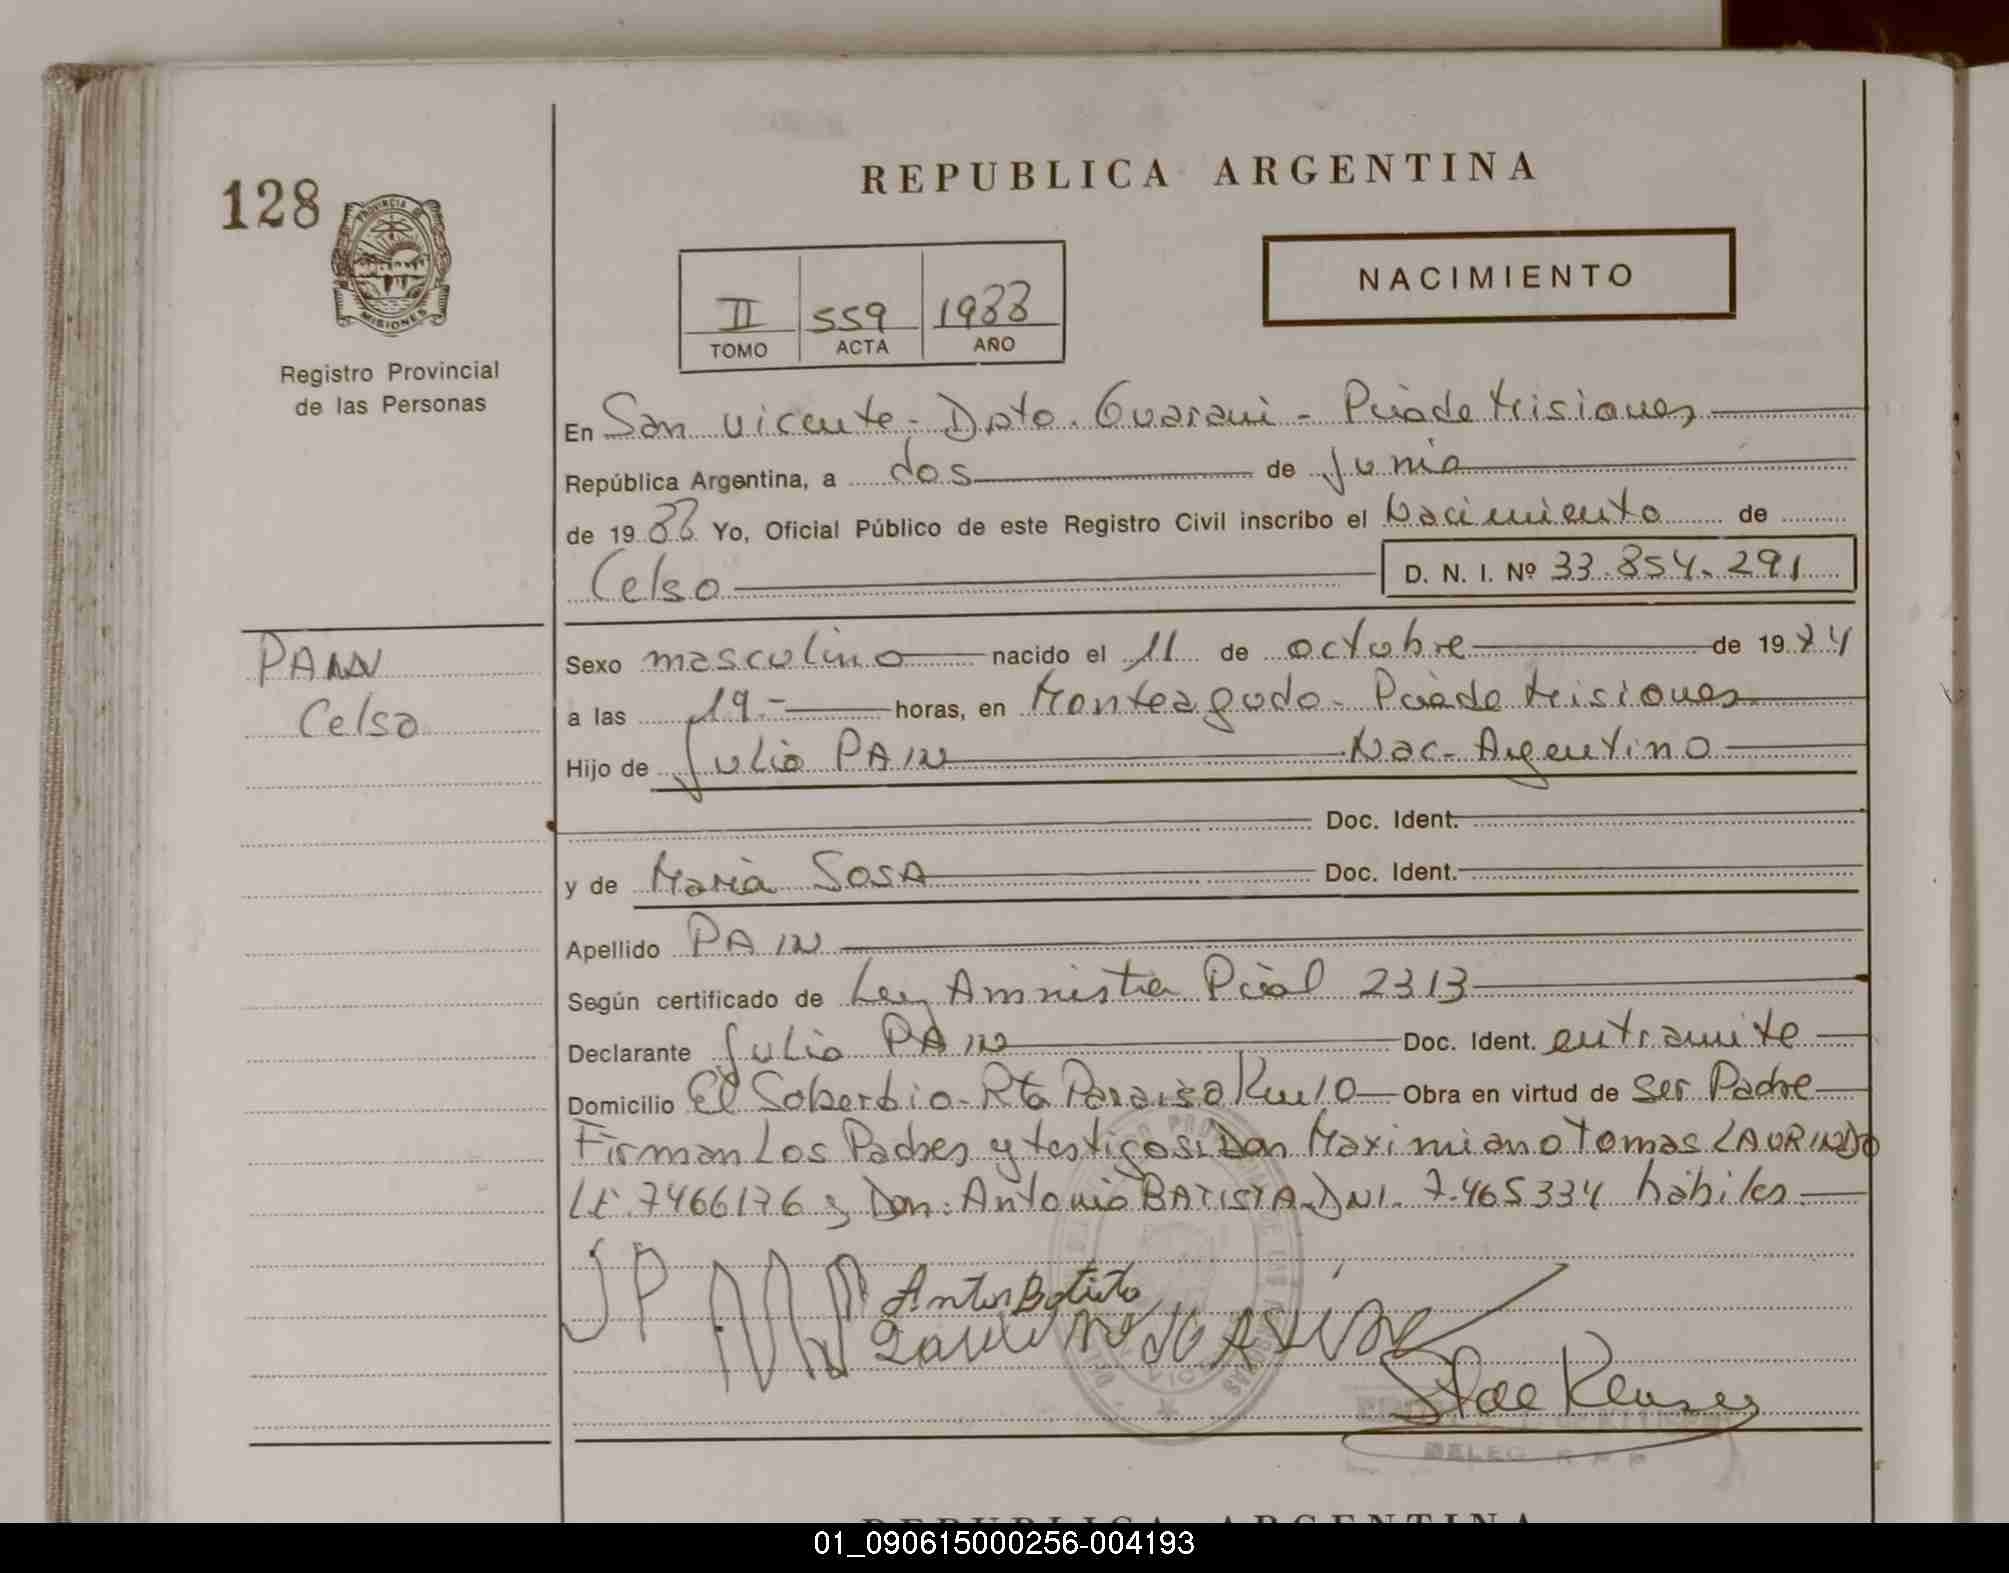 REPUBLICA ARGENTINA
128
PROVINCIA DE
MISIONES
Registro Provincial
de las Personas
NACIMIENTO
II 559 1988
TOMO ACTA AÑO
En San Vicente - Dpto. Guarani - Pciade Misiones
República Argentina, a dos de Junio
de 1988 Yo, Oficial Público de este Registro Civil inscribo el Nacimiento de
Celso D. N. I. Nº 33.854.291
PAIN
Celso
Sexo masculino nacido el 11 de octubre de 1974
a las 19.- horas, en Monteagudo - Pciade Misiones
Hijo de Julio PAIN Nac- Argentino
Doc. Ident.
y de Maria SOSA Doc. Ident.
Apellido PAIN
Según certificado de Ley Amnistia Pcial 2313
Declarante Julio PAIN Doc. Ident. entramite
Domicilio El Soberbio - Rta Paraiso Km 10 Obra en virtud de Ser Padre
Firman Los Padres y testigos: Don Maximiano Tomas LAURINDO
LE. 7466176 y Don: Antonio BATISTA. DNI. 7.465334 hábiles
JP
DELEG R P P
REPUBLICA ARGENTINA
01_090615000256-004193